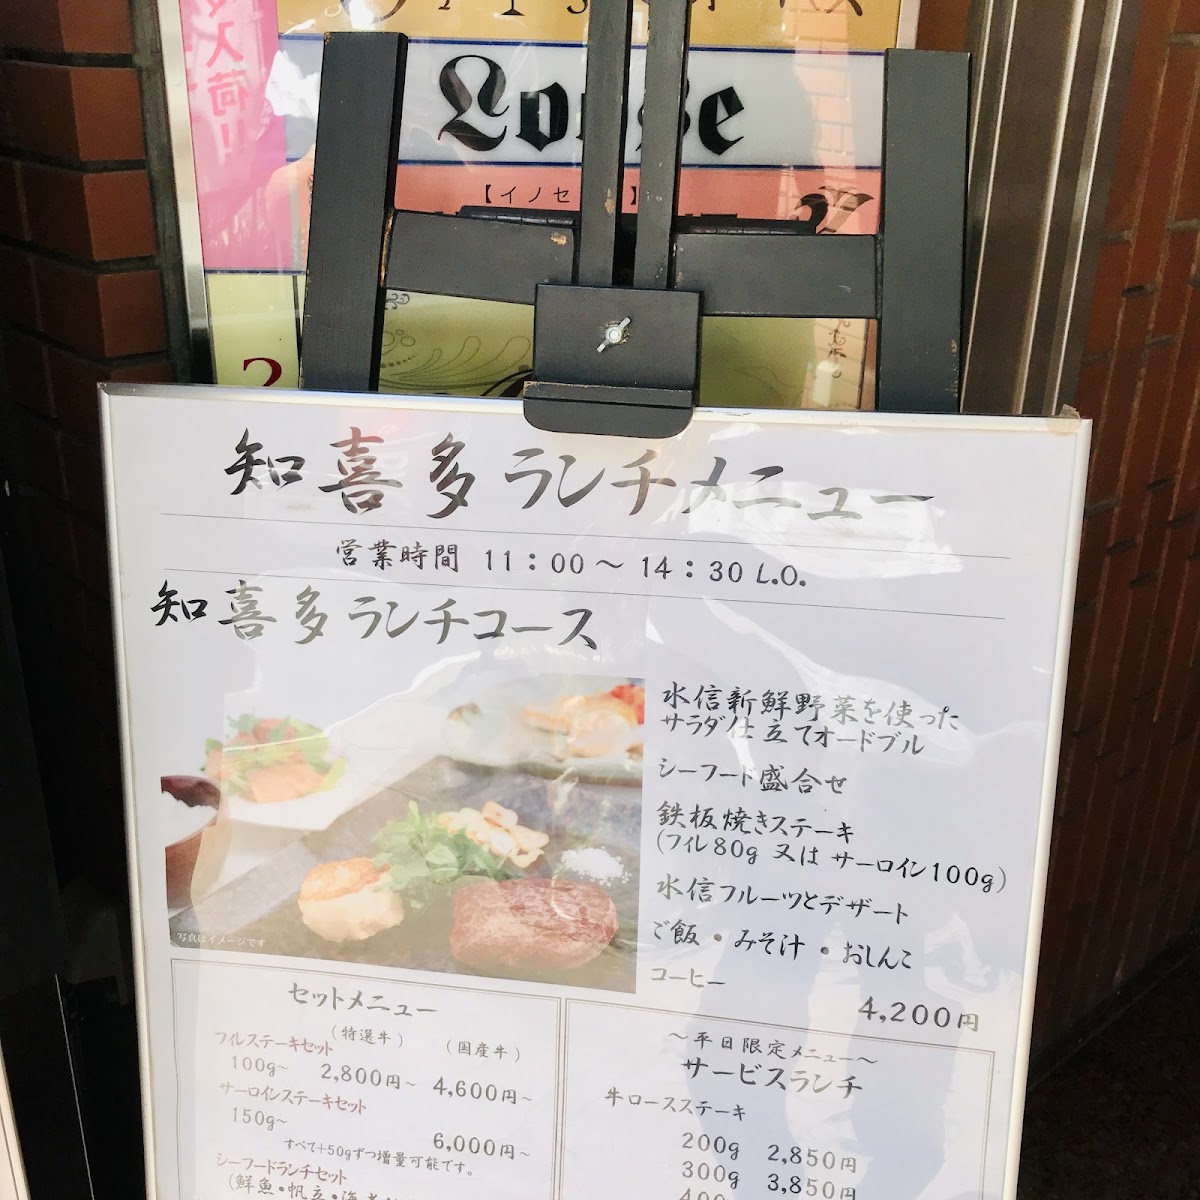 入荷!!
【イノセ
2
知喜多ランチメニュー
営業時間 11:00～14:30 L.O.
知喜多ランチコース
水信新鮮野菜を使った
サラダ仕立てオードブル
シーフード盛合せ
鉄板焼きステーキ
(フィレ80g 又は サーロイン100g)
水信フルーツとデザート
ご飯・みそ汁・おしんこ
コーヒー
4,200円
写真はイメージです
セットメニュー
(特選牛) (国産牛)
フィレステーキセット
100g~ 2,800円~ 4,600円~
サーロインステーキセット
150g~ 6,000円~
すべて+50gずつ増量可能です。
シーフードランチセット
(鮮魚・帆立・海老
～平日限定メニュー～
サービスランチ
牛ロースステーキ
200g 2,850円
300g 3,850円